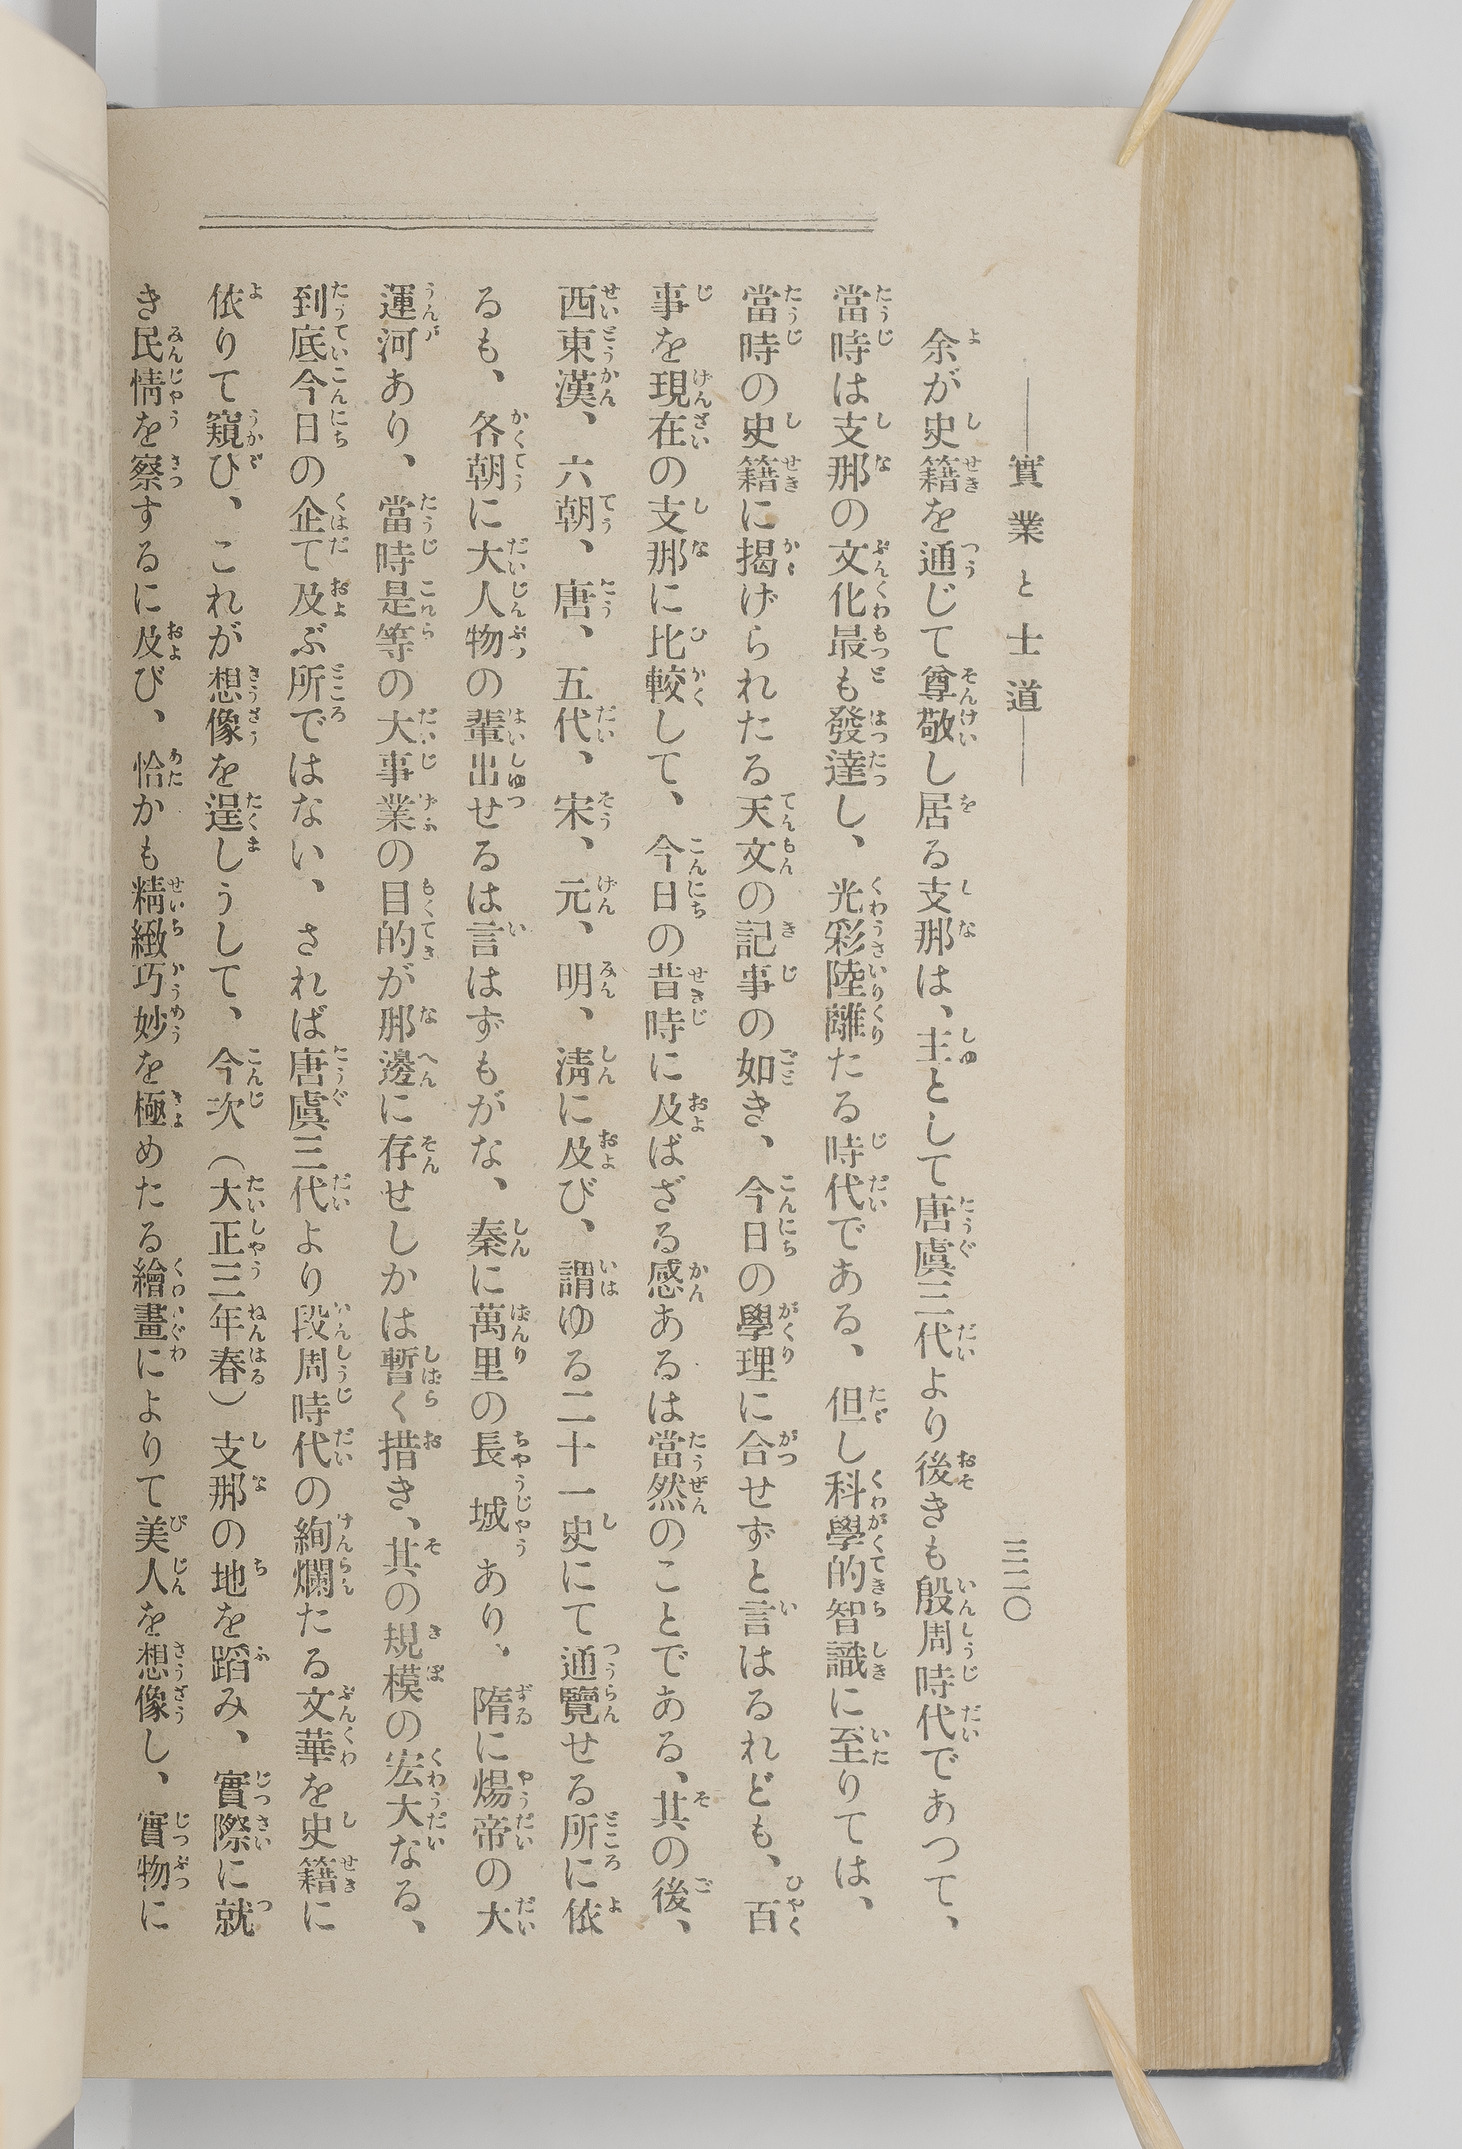 實業と士道
三二〇
余が史籍を通じて尊敬し居る支那は、主として唐虞三代より後きも殷周時代であつて、
當時は支那の文化最も發達し、光彩陸離たる時代である、但し科學的智識に至りては、
當時の史籍に揭げられたる天文の記事の如き、今日の學理に合せずと言はるれども、百
事を現在の支那に比較して、今日の昔時に及ばざる感あるは當然のことである、其の後、
西東漢、六朝、唐、五代、宋、元、明、淸に及び、謂ゆる二十一史にて通覽せる所に依
るも、各朝に大人物の輩出せるは言はずもがな、秦に萬里の長城あり、隋に煬帝の大
運河あり、當時是等の大事業の目的が那邊に存せしかは暫く措き、其の規模の宏大なる、
到底今日の企て及ぶ所ではない、されば唐虞三代より段周時代の絢爛たる文華を史籍に
依りて窺ひ、これが想像を逞しうして、今次（大正三年春）支那の地を蹈み、實際に就
き民情を察するに及び、恰かも精緻巧妙を極めたる繪畫によりて美人を想像し、實物に